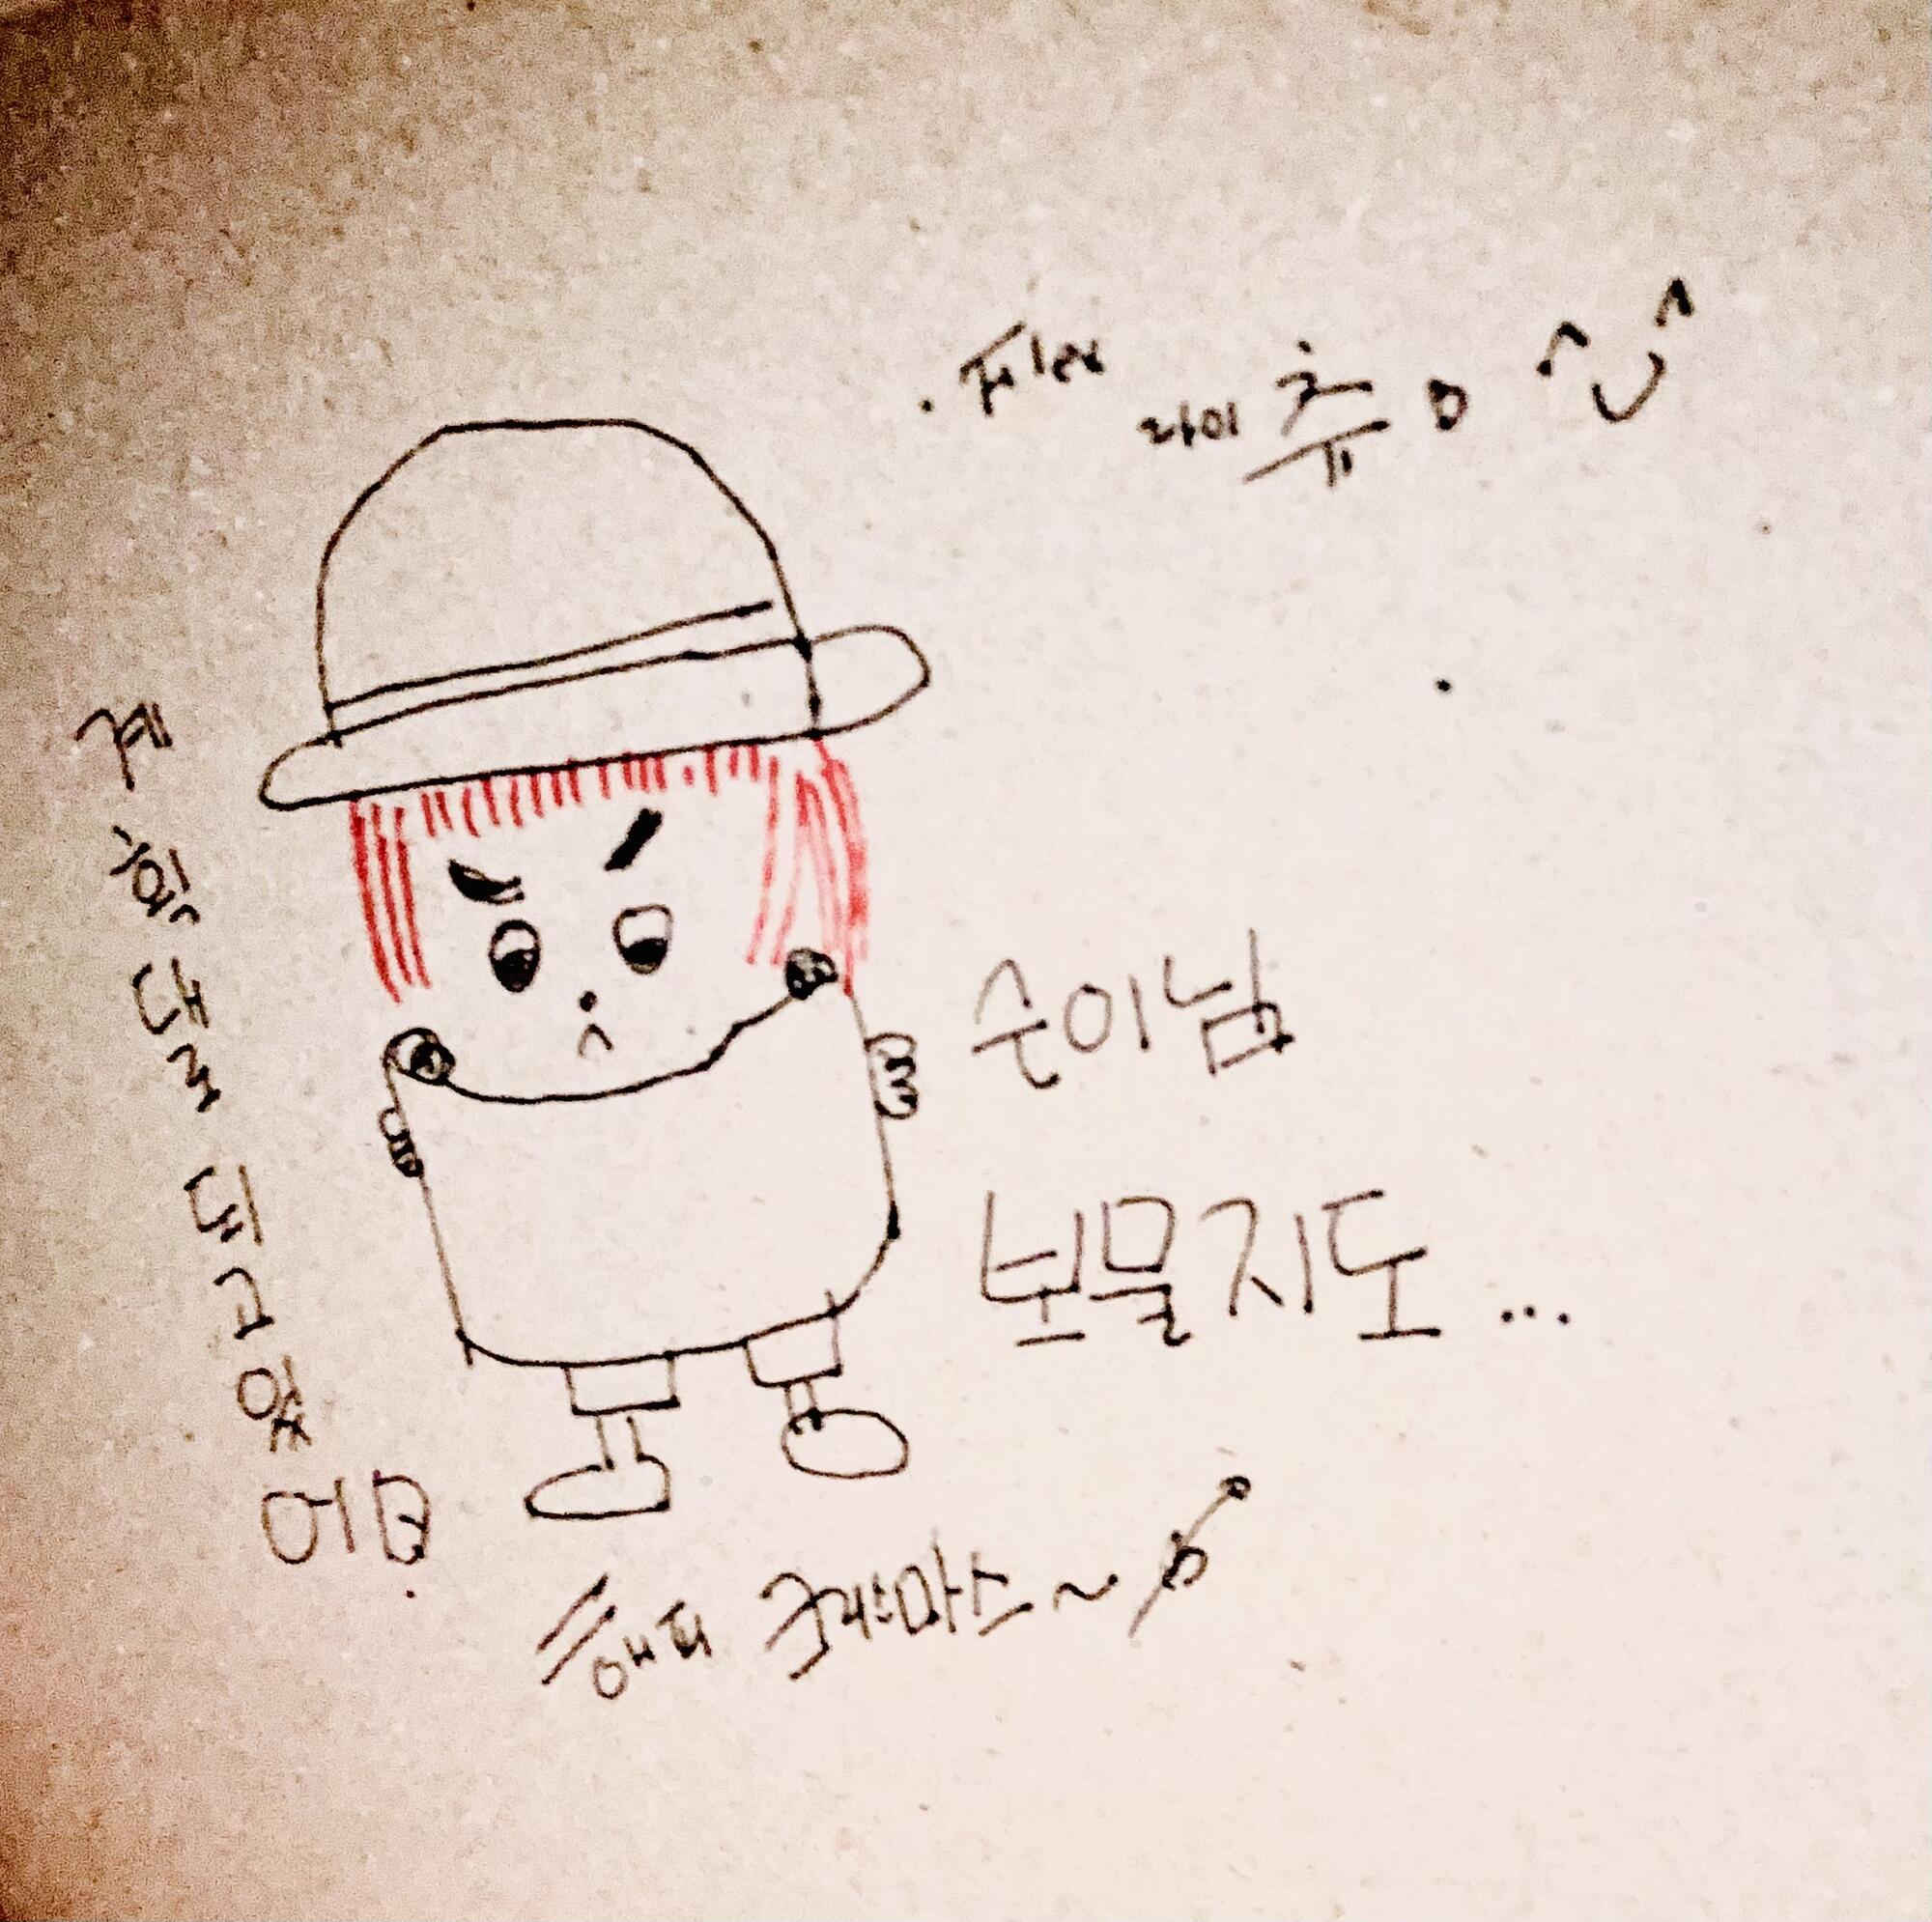 라이츄
계획대로 되고 있어
순이님
보물지도 ...
해피 크리스마스~